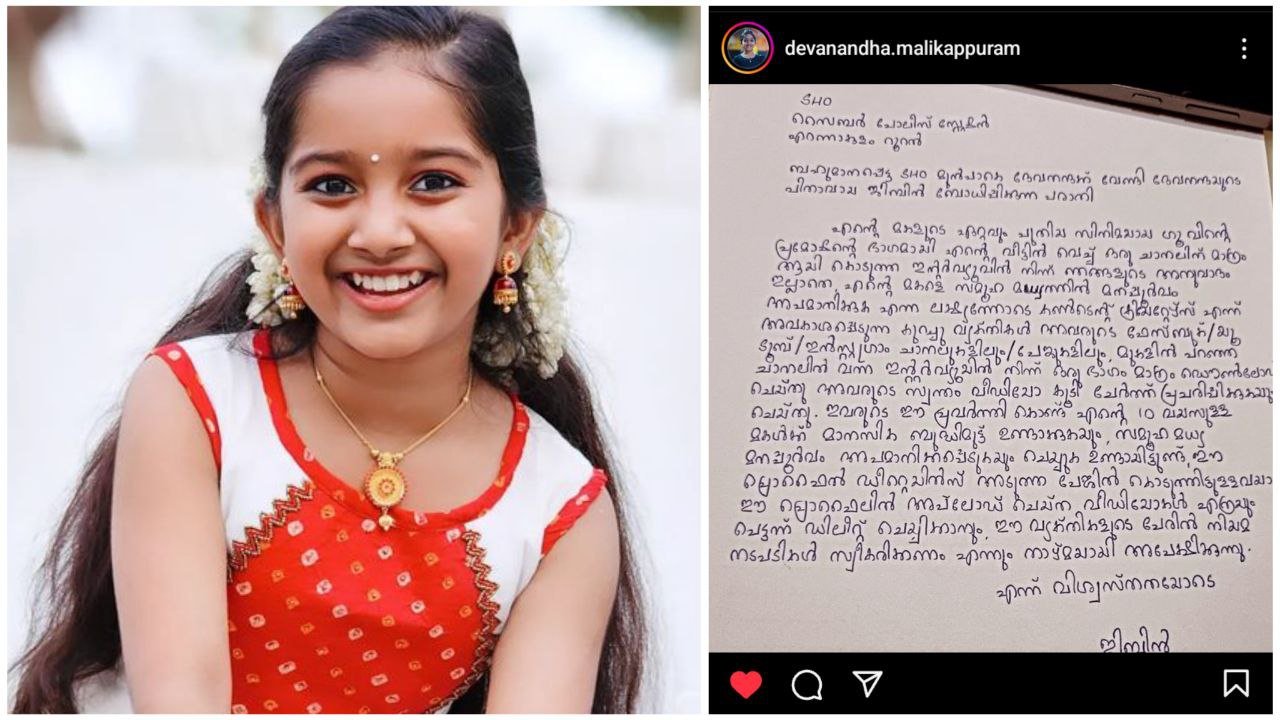 devanandha.malikappuram
SHO
സൈബർ പോലീസ് സ്റ്റേഷൻ
എറണാകുളം റൂറൽ
ബഹുമാനപ്പെട്ട SHO മുൻപാകെ ദേവനന്ദക്ക് വേണ്ടി ദേവനന്ദയുടെ
പിതാവായ ജിബിൻ ബോധിപ്പിക്കുന്ന പരാതി
എന്റെ മകളുടെ ഏറ്റവും പുതിയ സിനിമയായ ഗു വിന്റെ
പ്രമോഷന്റെ ഭാഗമായി എന്റെ വീട്ടിൽ വെച്ച് ഒരു ചാനലിന് മാത്രം
ആയി കൊടുത്ത ഇന്റർവ്യൂവിൽ നിന്ന് ഞങ്ങളുടെ അനുവാദം
ഇല്ലാതെ, എന്റെ മകളെ സമൂഹ മധ്യത്തിൽ മനപ്പൂർവം
അപമാനിക്കുക എന്ന ലക്ഷ്യത്തോടെ കണ്ടന്റ് ക്രിയേറ്റേഴ്സ് എന്ന്
അവകാശപ്പെടുന്ന കുറച്ചു വ്യക്തികൾ അവരുടെ ഫേസ്ബുക്/യൂ
ട്യൂബ്/ഇൻസ്റ്റഗ്രാം ചാനലുകളിലും/പേജുകളിലും, മുകളിൽ പറഞ്ഞ
ചാനലിൽ വന്ന ഇന്റർവ്യൂയിൽ നിന്ന് ഒരു ഭാഗം മാത്രം ഡൌൺലോഡ്
ചെയ്തു അവരുടെ സ്വന്തം വീഡിയോ കൂടി ചേർത്ത് പ്രചരിപ്പിക്കുകയും
ചെയ്തു. ഇവരുടെ ഈ പ്രവർത്തി കൊണ്ട് എന്റെ 10 വയസുള്ള
മകൾക്ക് മാനസിക ബുദ്ധിമുട്ട് ഉണ്ടാക്കുകയും, സമൂഹ മധ്യ
മനപ്പൂർവം അപമാനിക്കപ്പെടുകയും ചെയ്യുക ഉണ്ടായിട്ടുണ്ട്, ഈ
പ്രൊഫൈൽ ഡീറ്റെയിൽസ് അടുത്ത പേജിൽ കൊടുത്തിട്ടുള്ളവയാ
ഈ പ്രൊഫൈലിൽ അപ്‌ലോഡ് ചെയ്ത വീഡിയോകൾ എത്രയും
പെട്ടന്ന് ഡിലീറ്റ് ചെയ്യിക്കാനും, ഈ വ്യക്തികളുടെ പേരിൽ നിയമ
നടപടികൾ സ്വീകരിക്കണം എന്നും താഴ്മയായി അപേക്ഷിക്കുന്നു.
എന്ന് വിശ്വസ്തതയോടെ
ജിബിൻ